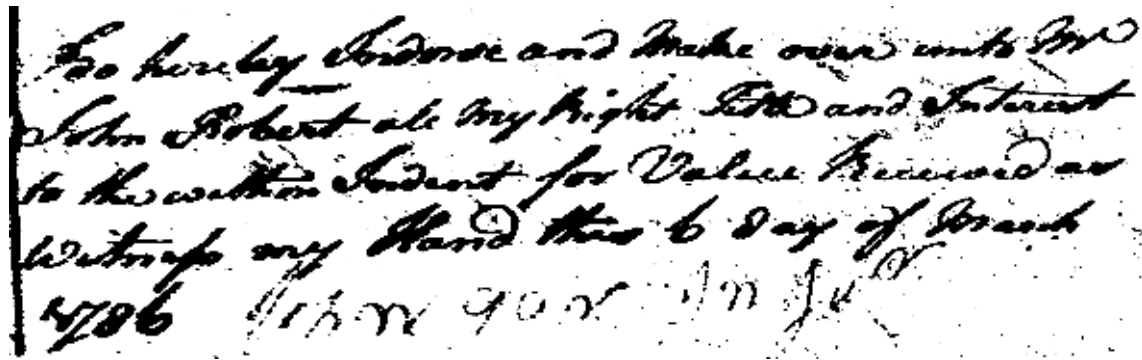 I do hereby Indorse and Make over unto Mr
John Robert all My Right Title and Interest
to the within Indent for Value Received as
Witness my Hand this 6 Day of March
1786 John